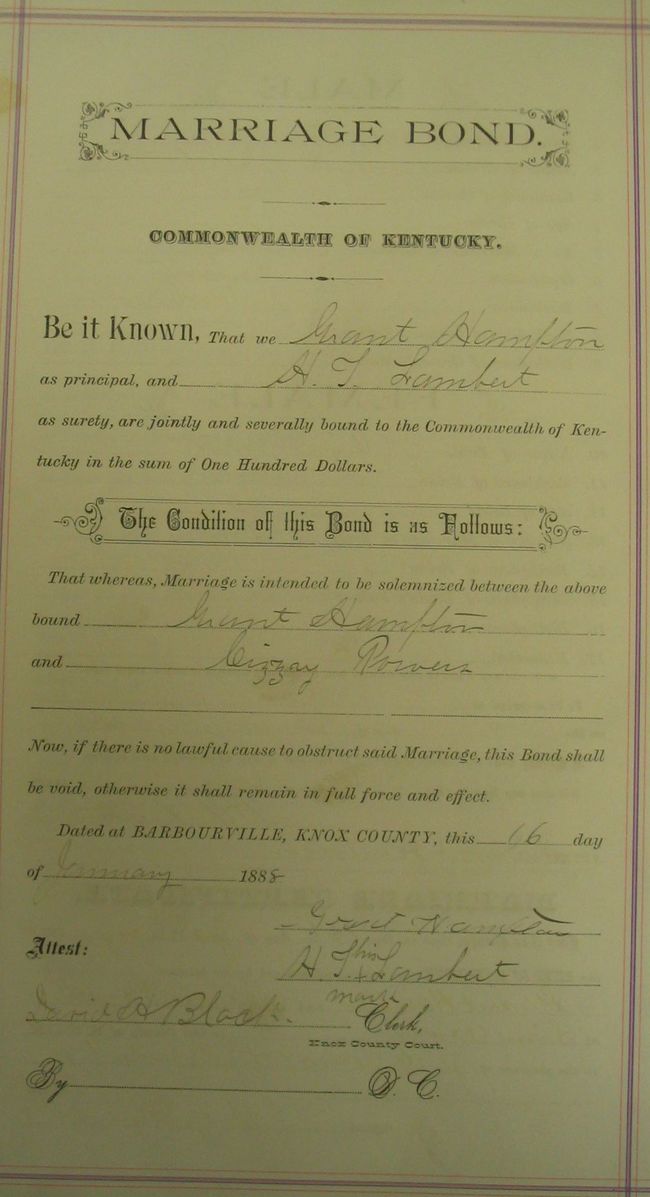 MARRIAGE BOND.
COMMONWEALTH OF KENTUCKY.
Be it Known, That we Grant Hampton
as principal, and H. T. Lambert
as surety, are jointly and severally bound to the Commonwealth of Ken-
tucky in the sum of One Hundred Dollars.
The Condition of this Bond is as Follows:
That whereas, Marriage is intended to be solemnized between the above
bound Grant Hampton
and Cizzay Powers
Now, if there is no lawful cause to obstruct said Marriage, this Bond shall
be void, otherwise it shall remain in full force and effect.
Dated at BARBOURVILLE, KNOX COUNTY, this 16 day
of January 1888
Grant Hampton
Attest:
H. T. his x mark Lambert
David H Black. Clerk,
Knox County Court.
By D. C.